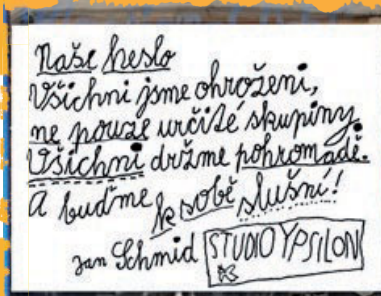 Naše heslo
Všichni jsme ohroženi,
ne pouze určité skupiny.
Všichni držme pohromadě.
A buďme k sobě slušní!
Jan Schmid STUDIO YPSILON